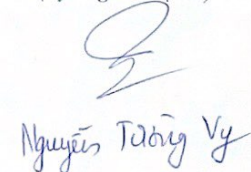 Nguyễn Tường Vy